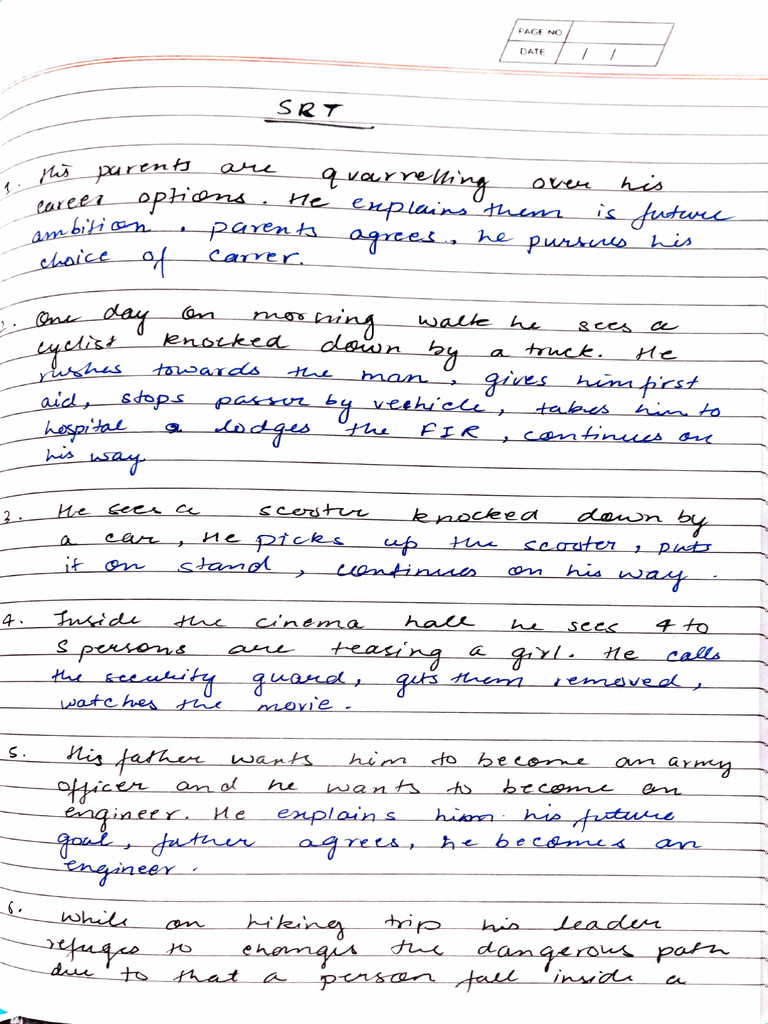 PAGE NO
DATE / /
SRT
1. His parents are quarrelling over his
career options. He explains them is future
ambition, parents agrees, he pursues his
choice of carrer.
2. One day on morning walk he sees a
cyclist knocked down by a truck. He
rushes towards the man, gives him first
aid, stops passer by vechicle, takes him to
hospital lodges the FIR, continues on
his way
3. He sees a scooter knocked down by
a car, He picks up the scooter, puts
it on stand, continues on his way.
4. Inside the cinema hall he sees 4 to
5 persons are teasing a girl. He calls
the security guard, gets them removed,
watches the movie.
5. His father wants him to become an army
officer and he wants to become an
engineer. He explains him his future
goal, father agrees, he becomes an
engineer.
6. While on hiking trip his leader
refuges to changes the dangerous path
due to that a person fall inside a